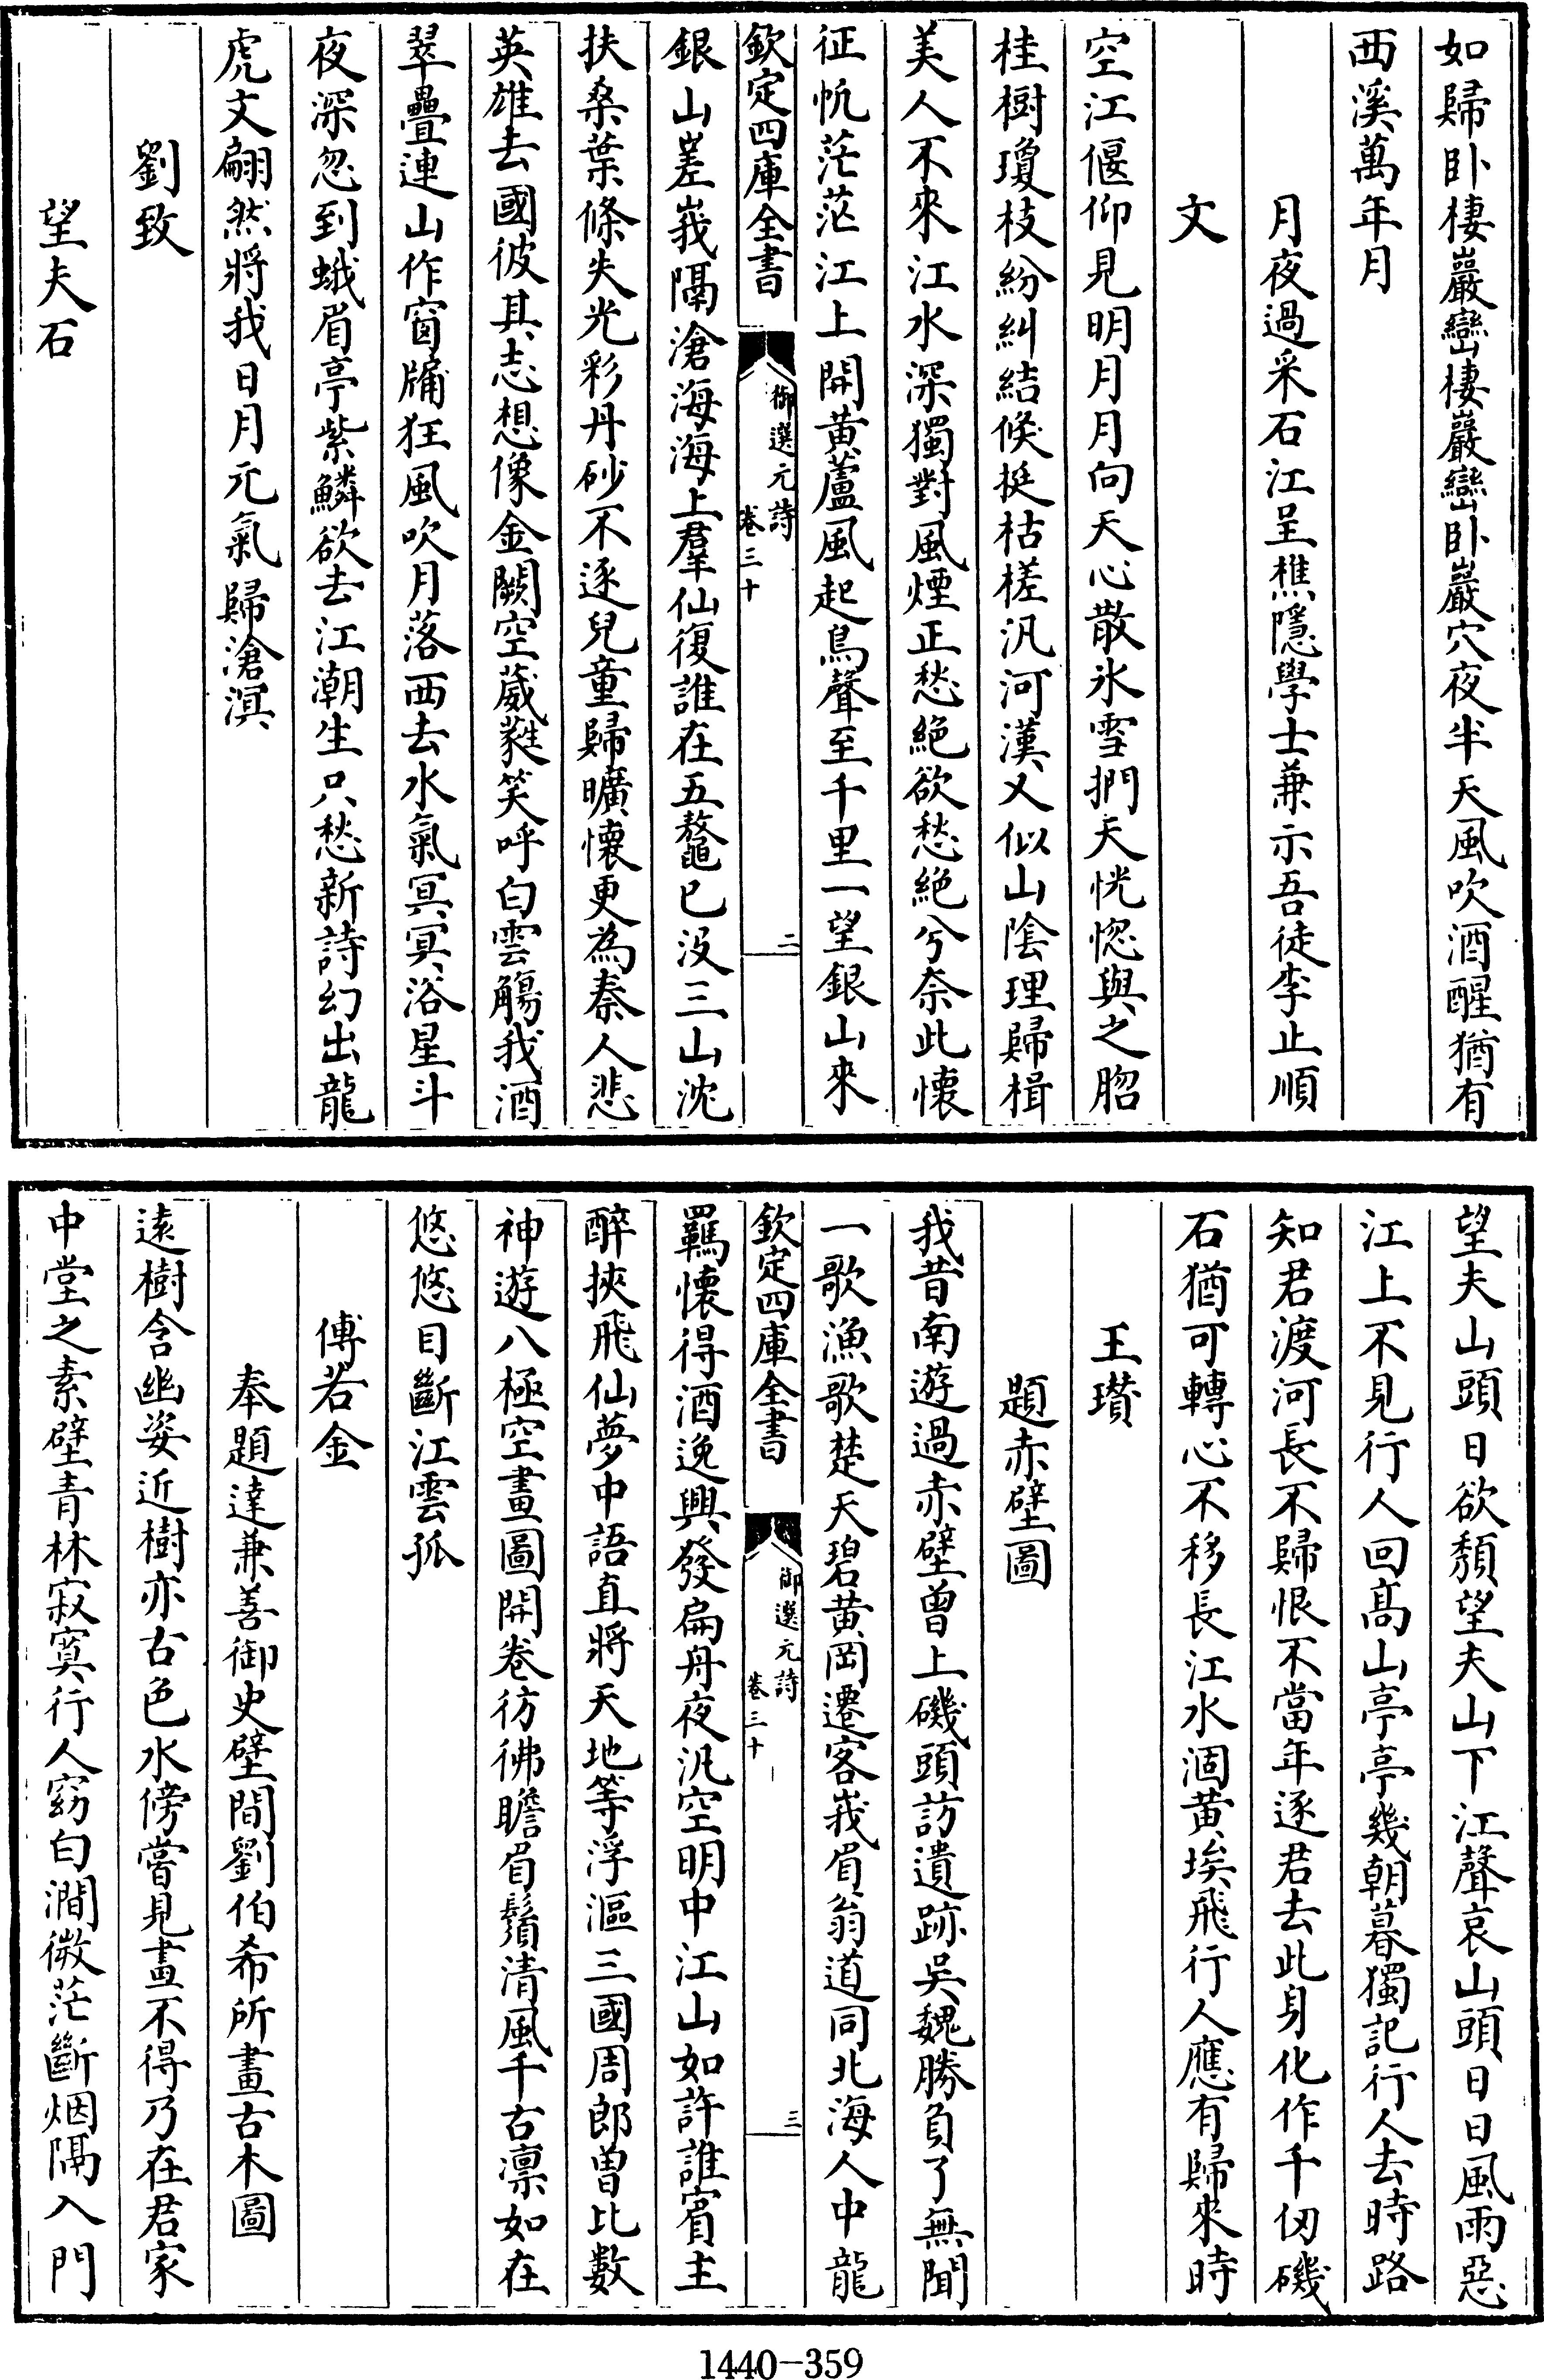 如歸卧棲巖巒棲巖巒卧巖穴夜半天風吹酒醒猶有
西溪萬年月
月夜過采石江呈樵隱學士兼示吾徒李止順
文
空江偃仰見明月月向天心散氷雪捫天恍惚與之䏚
桂樹瓊枝紛糾結倐挺枯槎汎河漢又似山隂理歸楫
美人不來江水深獨對風煙正愁絶欲愁絶兮奈此懷
征帆茫茫江上開黄蘆風起鳥聲至千里一望銀山來
欽定四庫全書
御選元詩
卷三十
二
銀山嵳峩隔滄海海上羣仙復誰在五鼇已没三山沈
扶桑葉條失光彩丹砂不逐兒童歸曠懷更為秦人悲
英雄去國彼其志想像金闕空葳蕤笑呼白雲觴我酒
翠疊連山作窗牖狂風吹月落西去水氣冥冥浴星斗
夜深忽到蛾眉亭紫鱗欲去江潮生只愁新詩幻出龍
虎文翩然將我日月元氣歸滄溟
劉致
望夫石
望夫山頭日欲頽望夫山下江聲哀山頭日日風雨惡
江上不見行人回髙山亭亭幾朝暮獨記行人去時路
知君渡河長不歸恨不當年逐君去此身化作千仞磯
石猶可轉心不移長江水涸黄埃飛行人應有歸來時
王瓚
題赤壁圖
我昔南遊過赤壁曾上磯頭訪遺跡吳魏勝負了無聞
一歌漁歌楚天碧黄岡遷客峩眉翁道同北海人中龍
欽定四庫全書
御選元詩
卷三十
三
羈懷得酒逸興發扁舟夜汎空明中江山如許誰賓主
醉挾飛仙夢中語直將天地等浮漚三國周郎曽比數
神遊八極空畫圖開卷彷彿瞻眉鬚清風千古凛如在
悠悠目斷江雲孤
傅若金
奉題達兼善御史壁間劉伯希所畫古木圖
逺樹含幽姿近樹亦古色水傍嘗見畫不得乃在君家
中堂之素壁青林寂寞行人窈白澗微茫斷烟隔入門
1440-359